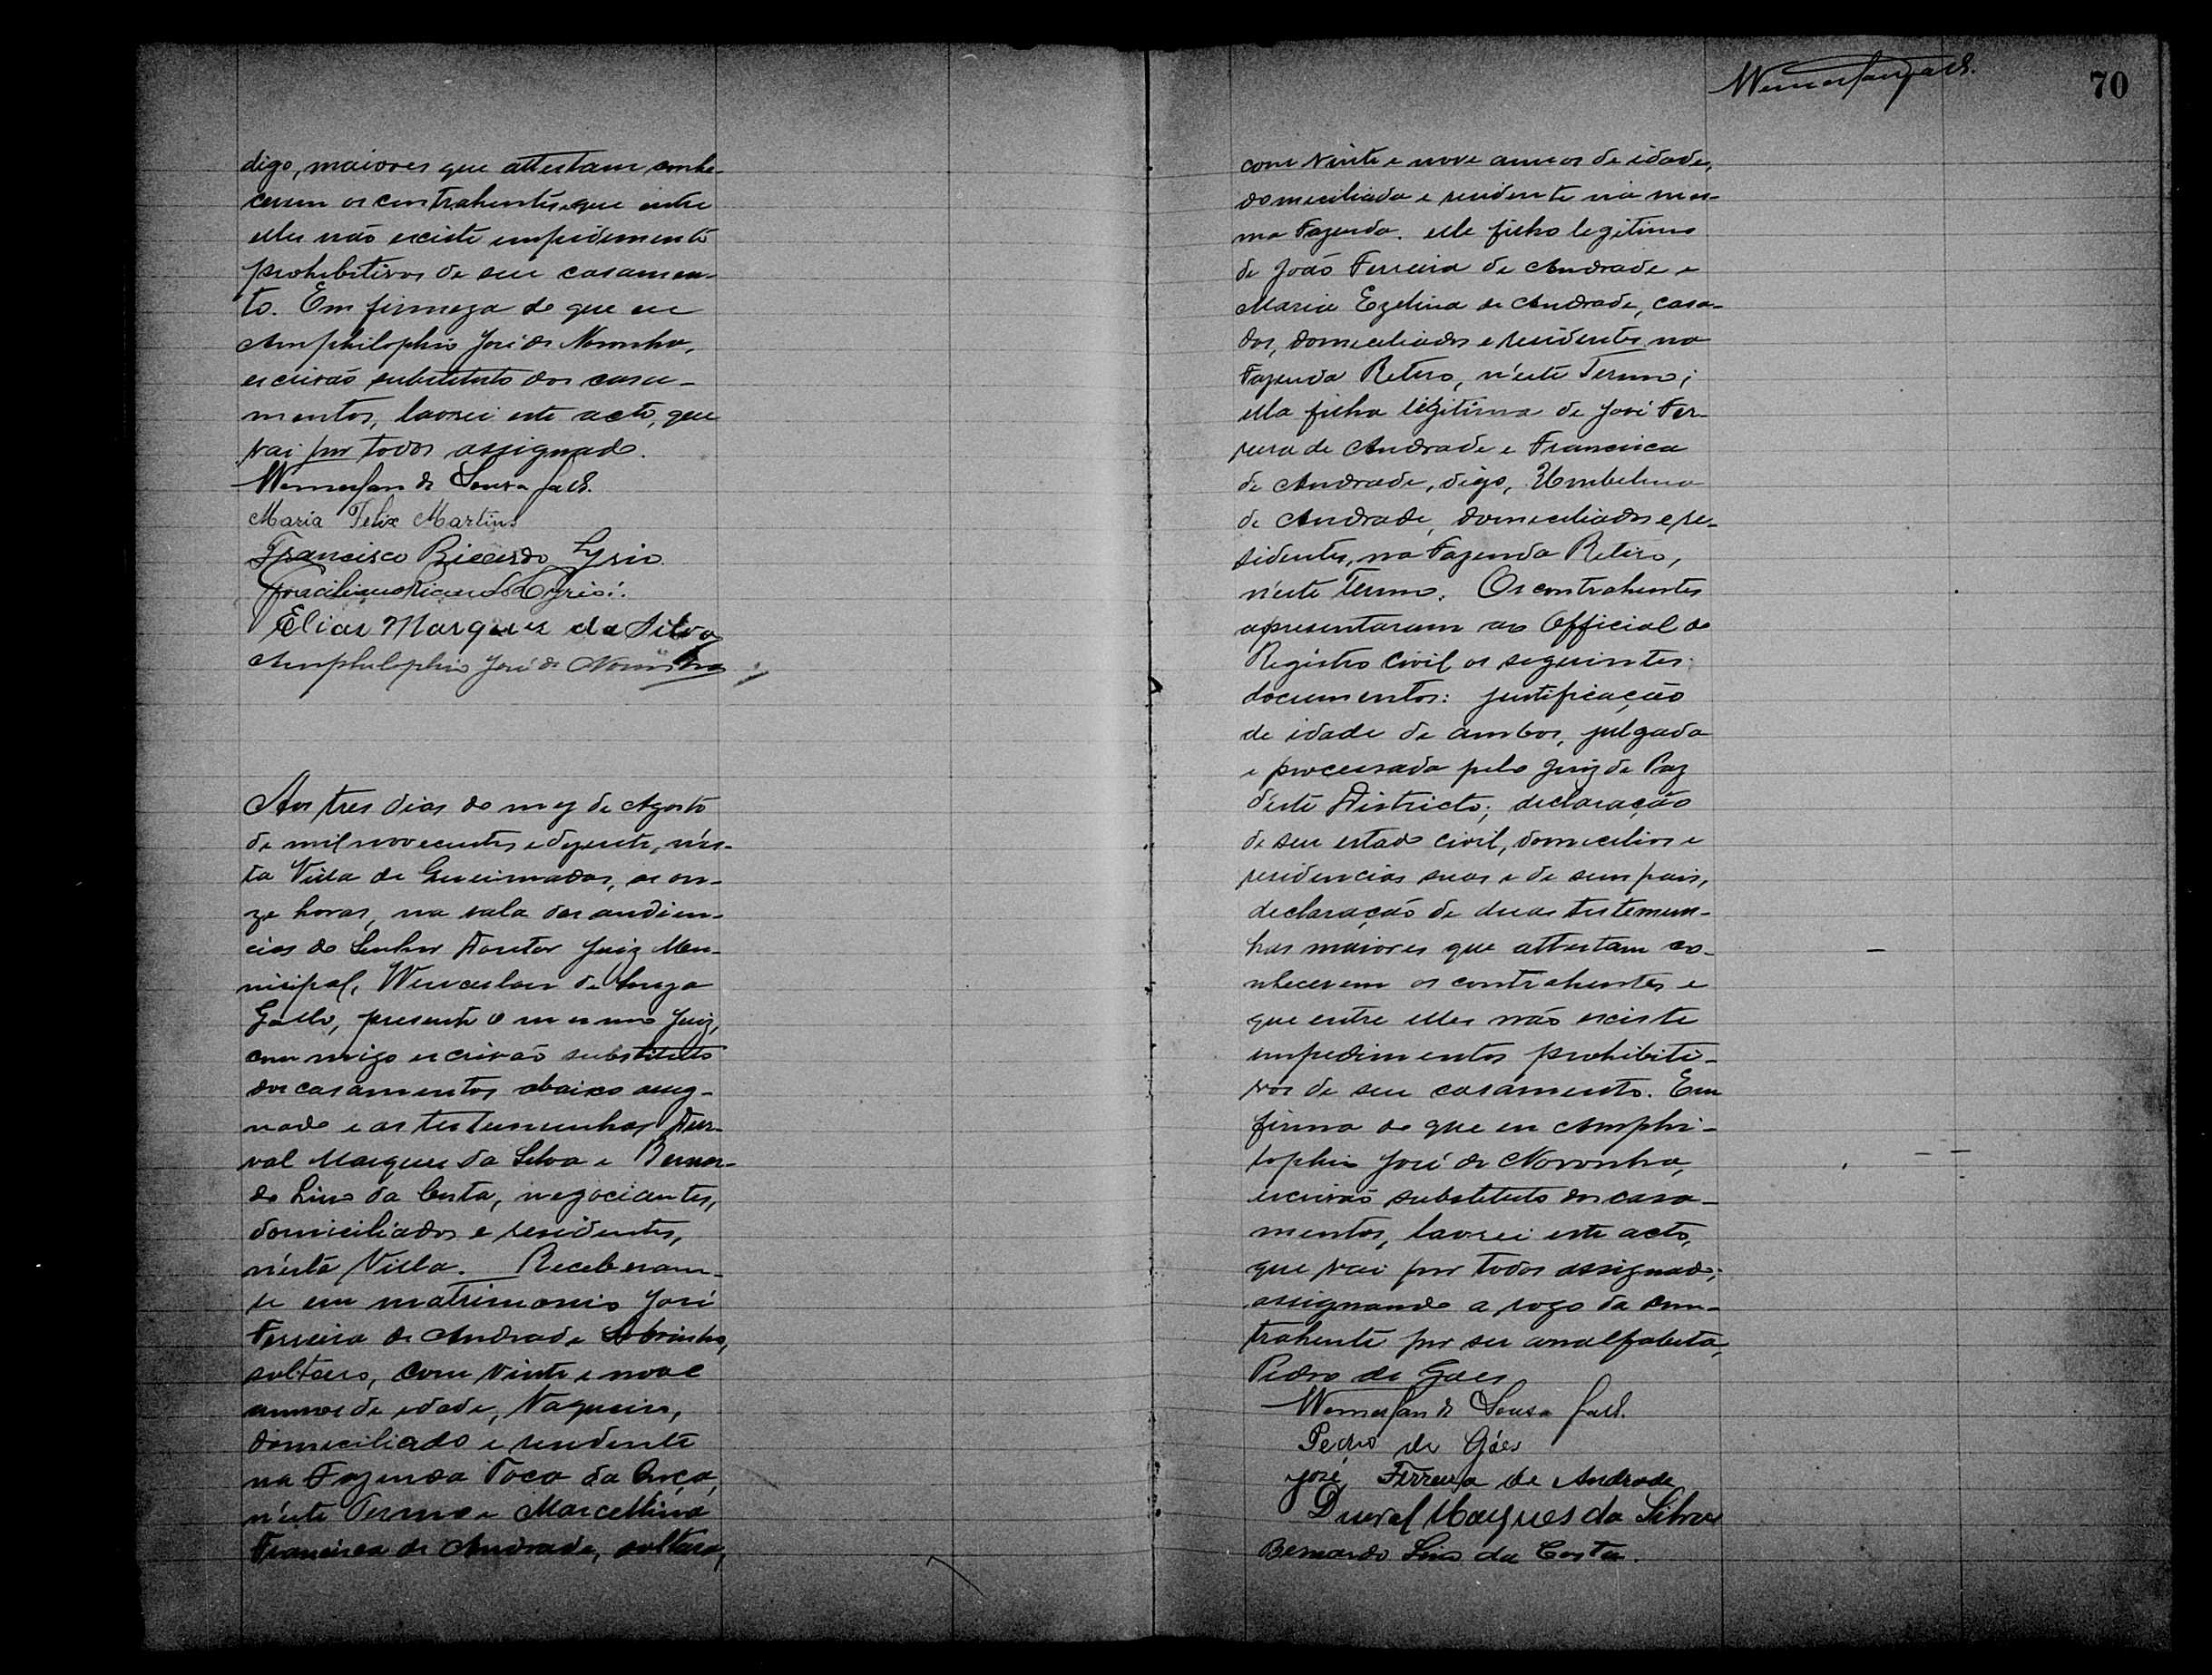 digo, maiores que attestam conhe-
cerem os contrahentes e que entre
elles não existe impedimento
prohibitivos de seu casamen-
to. Em firmeza do que eu
Amphilophio José de Noronha,
escrivão substituto dos casa-
mentos, lavrei este acto, que
vai por todos assignado.
de Sousa
Maria Felix Martins
Francisco Ricardo Lyrio
Ricardo Lyrio.
Elias Marques da Silva
Amphilophio José de Noronha
Aos tres dias do mez de Agosto
de mil novecentos e dezesete, n'es-
ta Villa de Queimadas, as on-
ze horas, na sala das audien-
cias do Senhor Doutor Juiz Mu-
nicipal, Wenceslau de Souza
Gallo, presente o mesmo Juiz,
commigo escrivão substituto
dos casamentos abaixo assig-
nado e as testemunhas Dur-
val Marques da Silva e Bernar-
do Lino da Costa, negociantes,
domiciliados e residentes,
n'esta Villa. Receberam-
se em matrimonio José
Ferreira de Andrade Sobrinho,
solteiro, com vinte e nove
annos de edade, Vaqueiro,
domiciliado e residente
na Fazenda Toca da Onça,
n'este Termo e Marcellina
Francisca de Andrade, solteira,
70
com vinte e nove annos de idade,
domiciliada e residente na mes-
ma Fazenda. elle filho legitimo
de João Ferreira de Andrade e
Maria Ezelina de Andrade, casa-
dos, domiciliados e residentes na
Fazenda Retiro, n'este Termo;
ella filha legitima de José Fer-
reira de Andrade e Francisca
de Andrade, digo, Umbelina
de Andrade, domiciliados e re-
sidentes, na Fazenda Retiro,
n'este Termo. Os contrahentes
apresentaram ao Official do
Registro Civil os seguintes
documentos: justificação
de idade de ambos, julgada
e processada pelo Juiz de Paz
d'este Districto; declaração
de seu estado civil, domicilios e
residencias suas e de seus pais,
declaração de duas testemun-
has maiores que attestam co-
nhecerem os contrahentes e
que entre elles não existe
impedimentos prohibiti-
vos de seu casamento. Em
firma do que eu Amphi-
lophio José de Noronha,
escrivão substituto dos casa-
mentos, lavrei este acto,
que vai por todos assignado;
assignando a rogo da con-
trahente por ser analfabeta,
Pedro de Goes
de Sousa
Pedro de Góes
José Ferreira de Andrade
Durval Marques da Silva
Bernardo Lino da Costa.